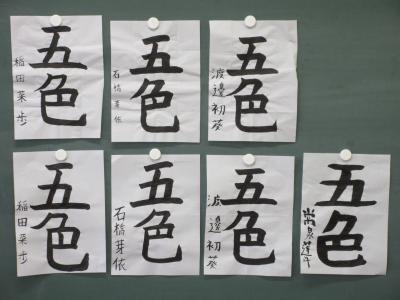 五色
稲田菜歩
五色
石橋芽依
五色
渡邉初葵
五色
稲田菜歩
五色
石橋芽依
五色
渡邉初葵
五色